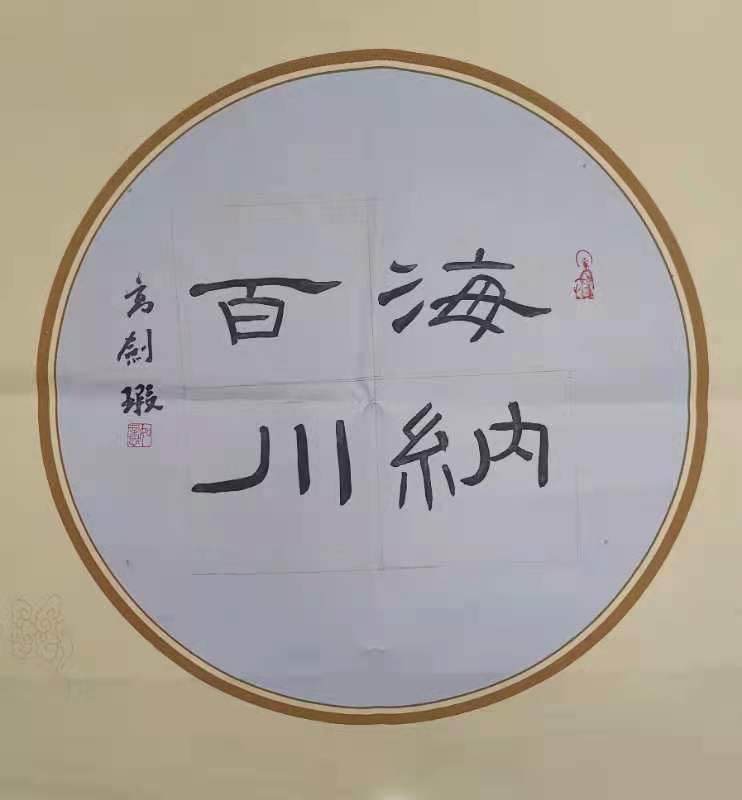 海納
百川
高劍瑕